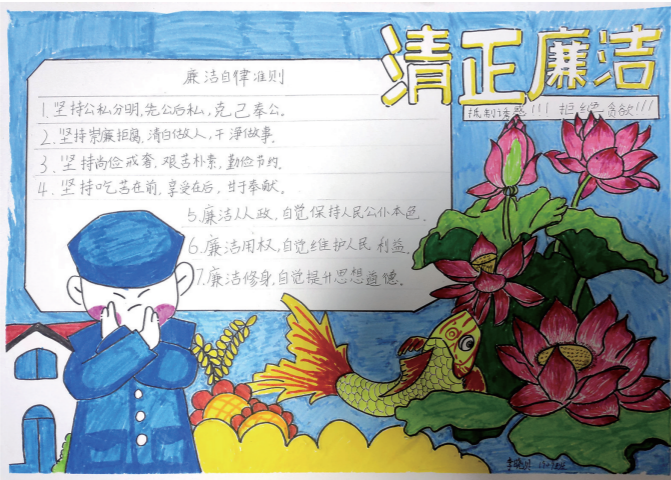 清正廉洁
抵制诱惑!!! 拒绝贪欲!!!
廉洁自律准则
1.坚持公私分明,先公后私,克己奉公。
2.坚持崇廉拒腐,清白做人,干净做事。
3.坚持尚俭戒奢,艰苦朴素,勤俭节约。
4.坚持吃苦在前,享受在后,甘于奉献。
5.廉洁从政,自觉保持人民公仆本色.
6.廉洁用权,自觉维护人民利益.
7.廉洁修身,自觉提升思想道德.